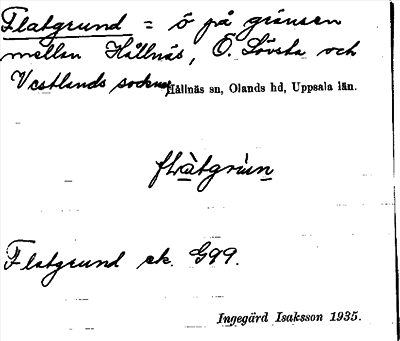 Flatgrund = ö på gränsen
mellan Hållnäs, Ö. Lövsta och
Vestlands socknar
Hållnäs sn, Olands hd, Uppsala län.
flàtgrùn
Flatgrund ek. G99.
Ingegärd Isaksson 1935.